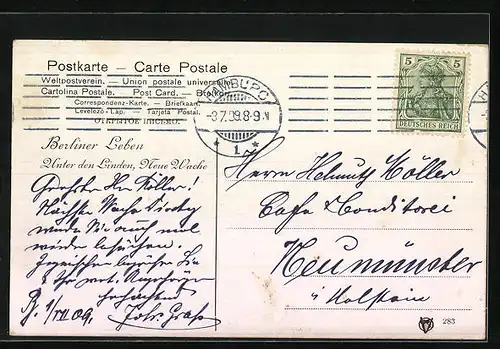 Postkarte — Carte Postale
Weltpostverein. — Union postale universelle
Cartolina Postale. Post Card. — Briefkort
Correspondenz-Karte. — Briefkaart.
Levelezö-Lap. — Tarjeta Postal.
ОТКРЫТОЕ ПИСЬМО.
HAMBURG
-3.7.09.8-9 N
* 1 *
5 5
DEUTSCHES REICH
Berliner Leben
Unter den Linden, Neue Wache
Geehrter Hr Köller!
Nächste Woche
werde Sie auch mal
wieder besuchen.
Inzwischen begrüsse Sie
Johs. Grass
1/VII 09.
Herrn Helmuth Möller
Cafe & Conditorei
Neumünster
i Holstein
283